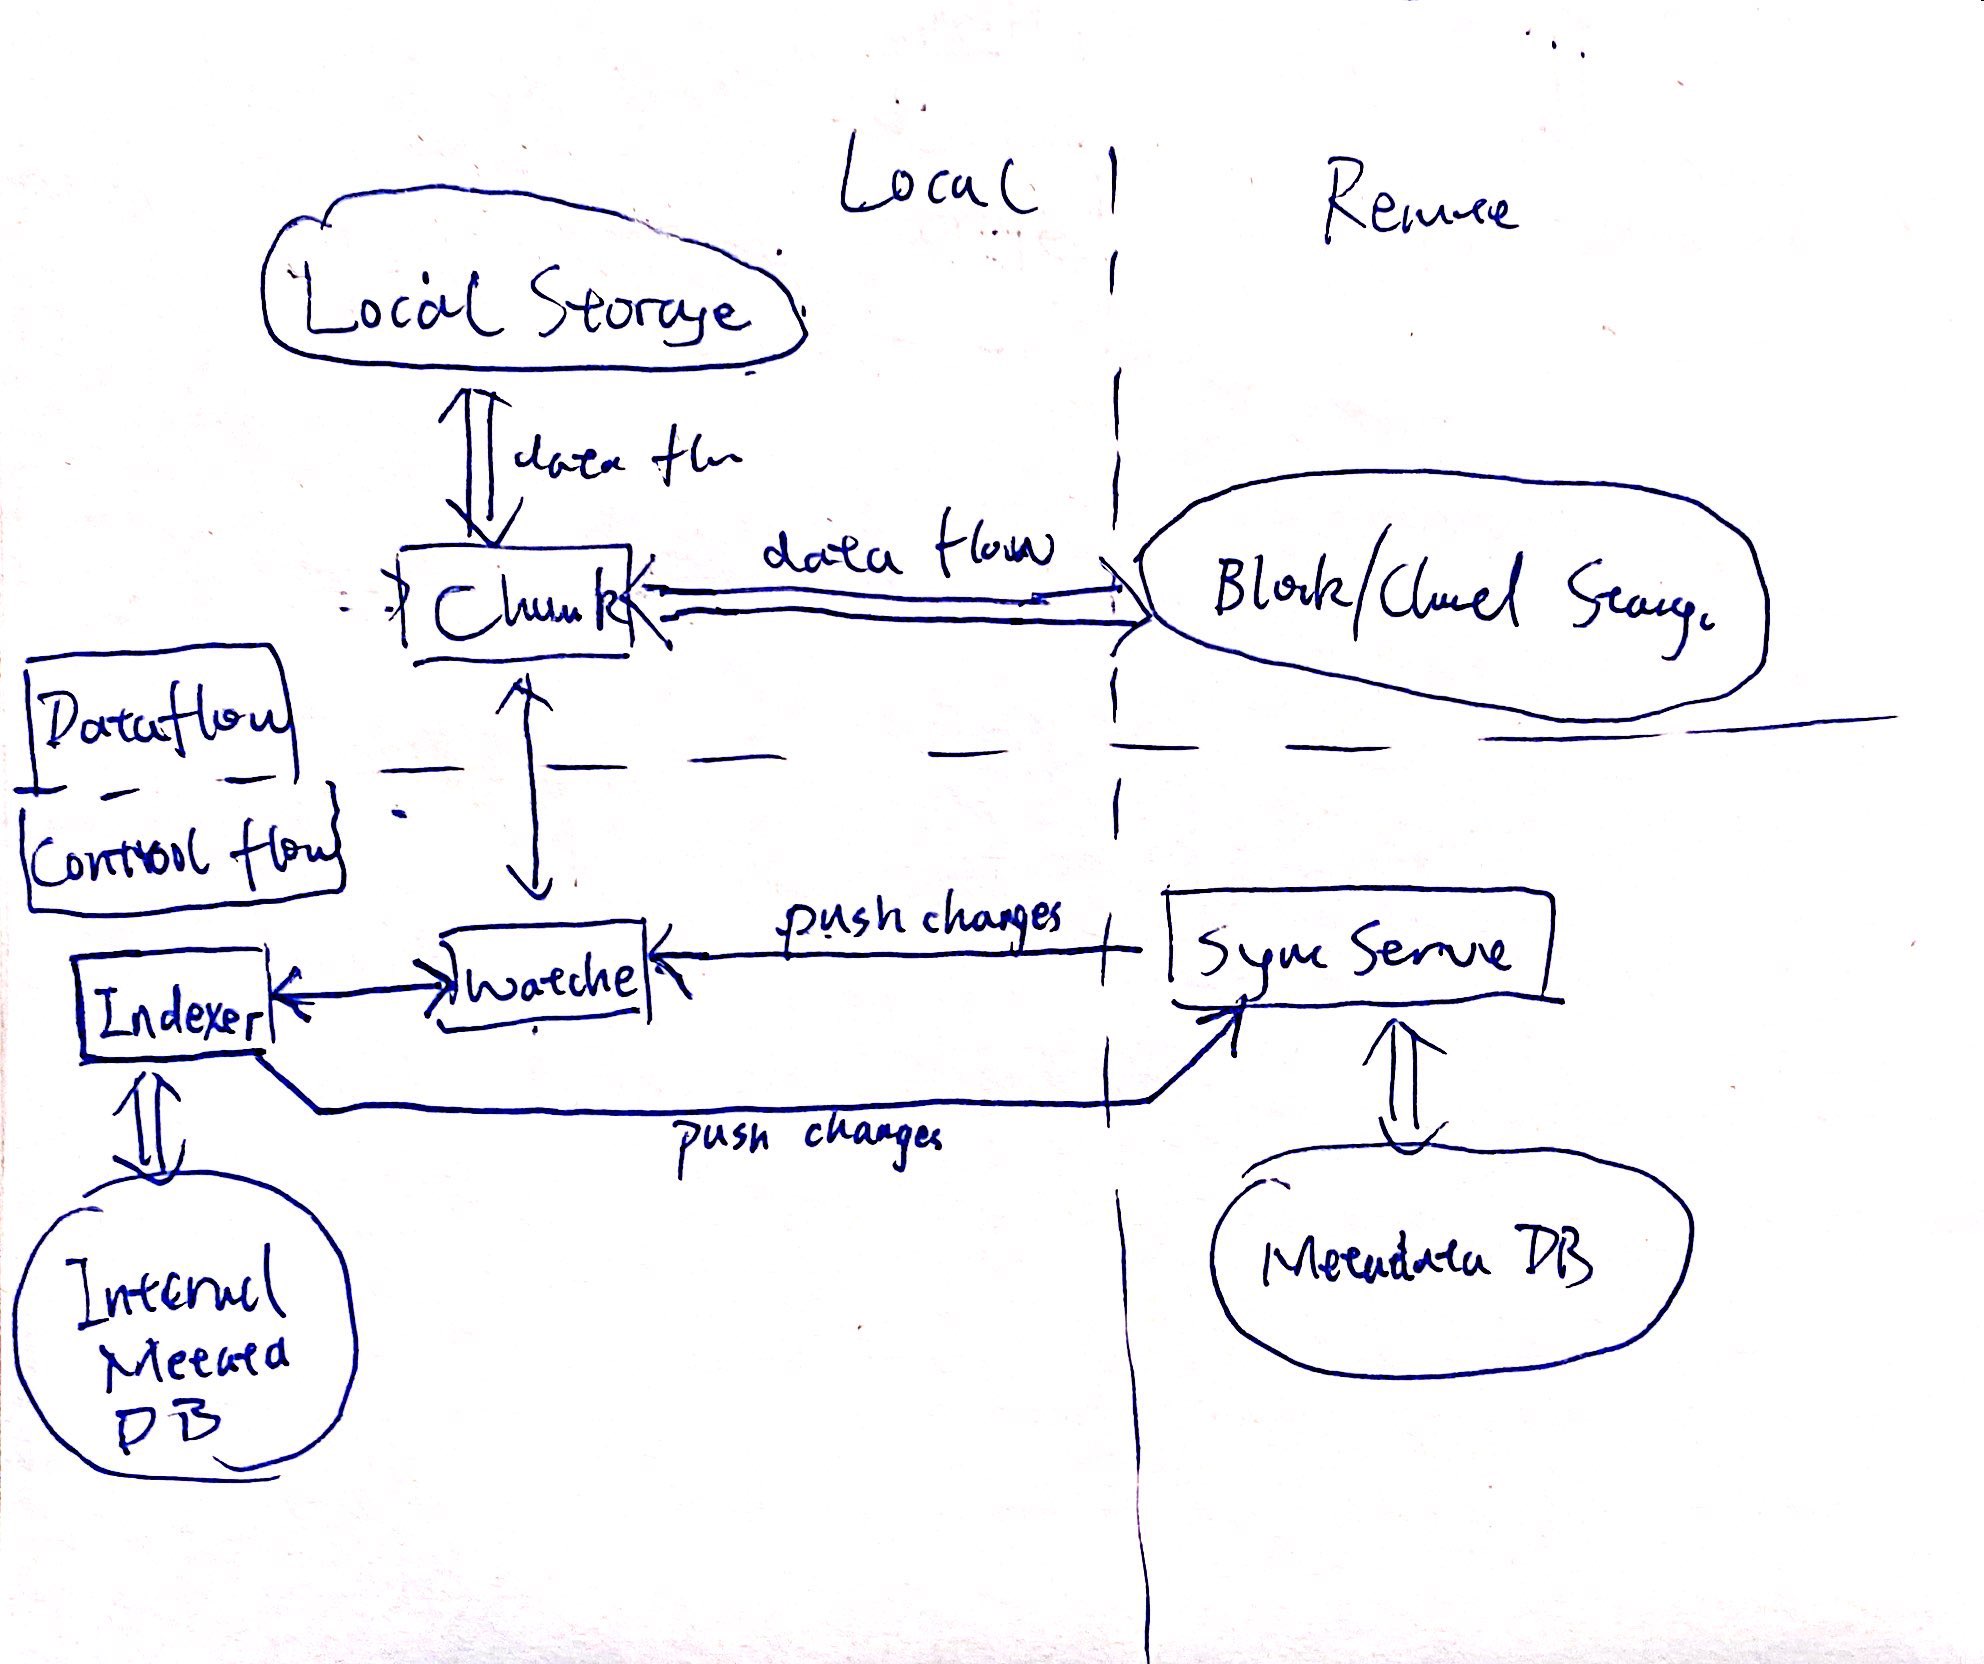 Local
Remote
Local Storage
data flow
data flow
Chunk
Block/Cloud Storage
Dataflow
Control flow
push changes
Sync Service
Indexer
Watche
push changes
Internal
Metadata
DB
Metadata DB